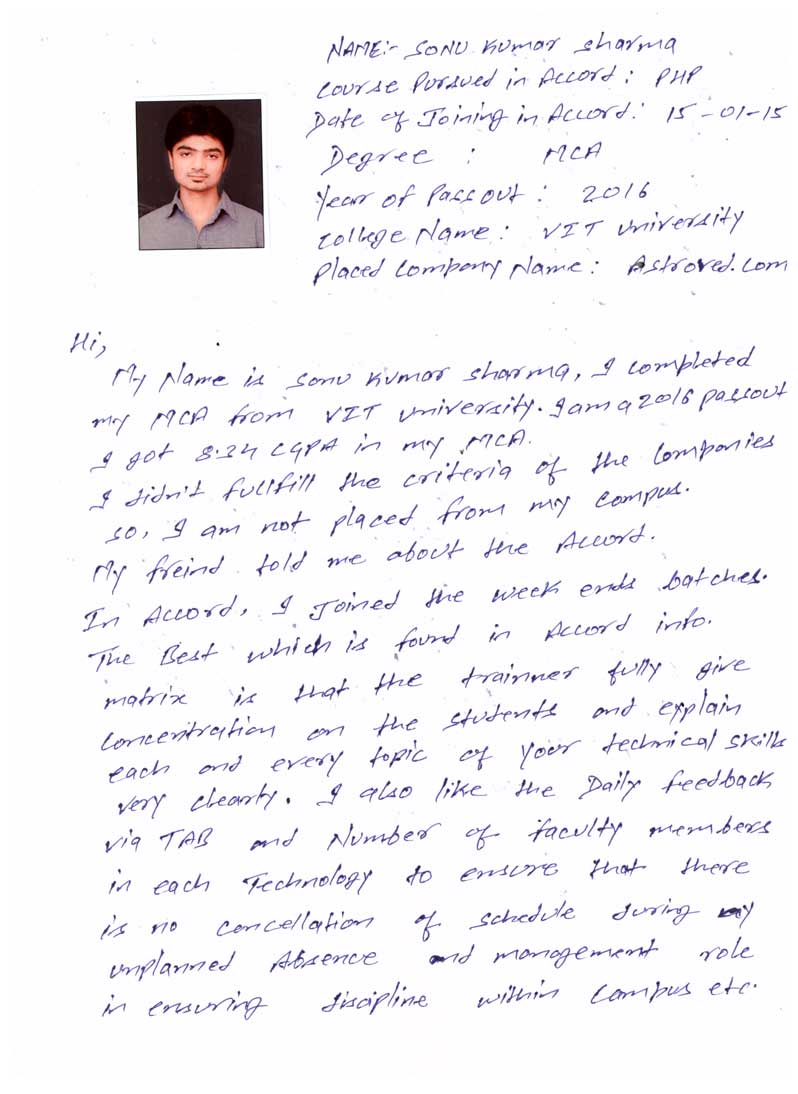 NAME:- SONU Kumar Sharma
Course Pursued in Accord: PHP
Date of Joining in Accord: 15-01-15
Degree : MCA
Year of Passout: 2016
College Name: VIT University
Placed Company Name: Astroved.Com
Hi,
My Name is Sonu Kumar Sharma, I completed
my MCA from VIT University. I am a 2016 passout
I got 8.34 CGPA in my MCA.
I didn't fullfill the criteria of the Companies
so, I am not placed from my Campus.
My freind told me about the Accord.
In Accord, I Joined the week ends batches.
The Best which is found in Accord info.
matrix is that the trainner fully give
Concentration on the students and explain
each and every topic of your technical skills
very clearty. I also like the Daily feedback
via TAB and Number of faculty members
in each Technology to ensure that there
is no concellation of schedule during my
unplanned Absence and management role
in ensuring discipline within Campus etc.